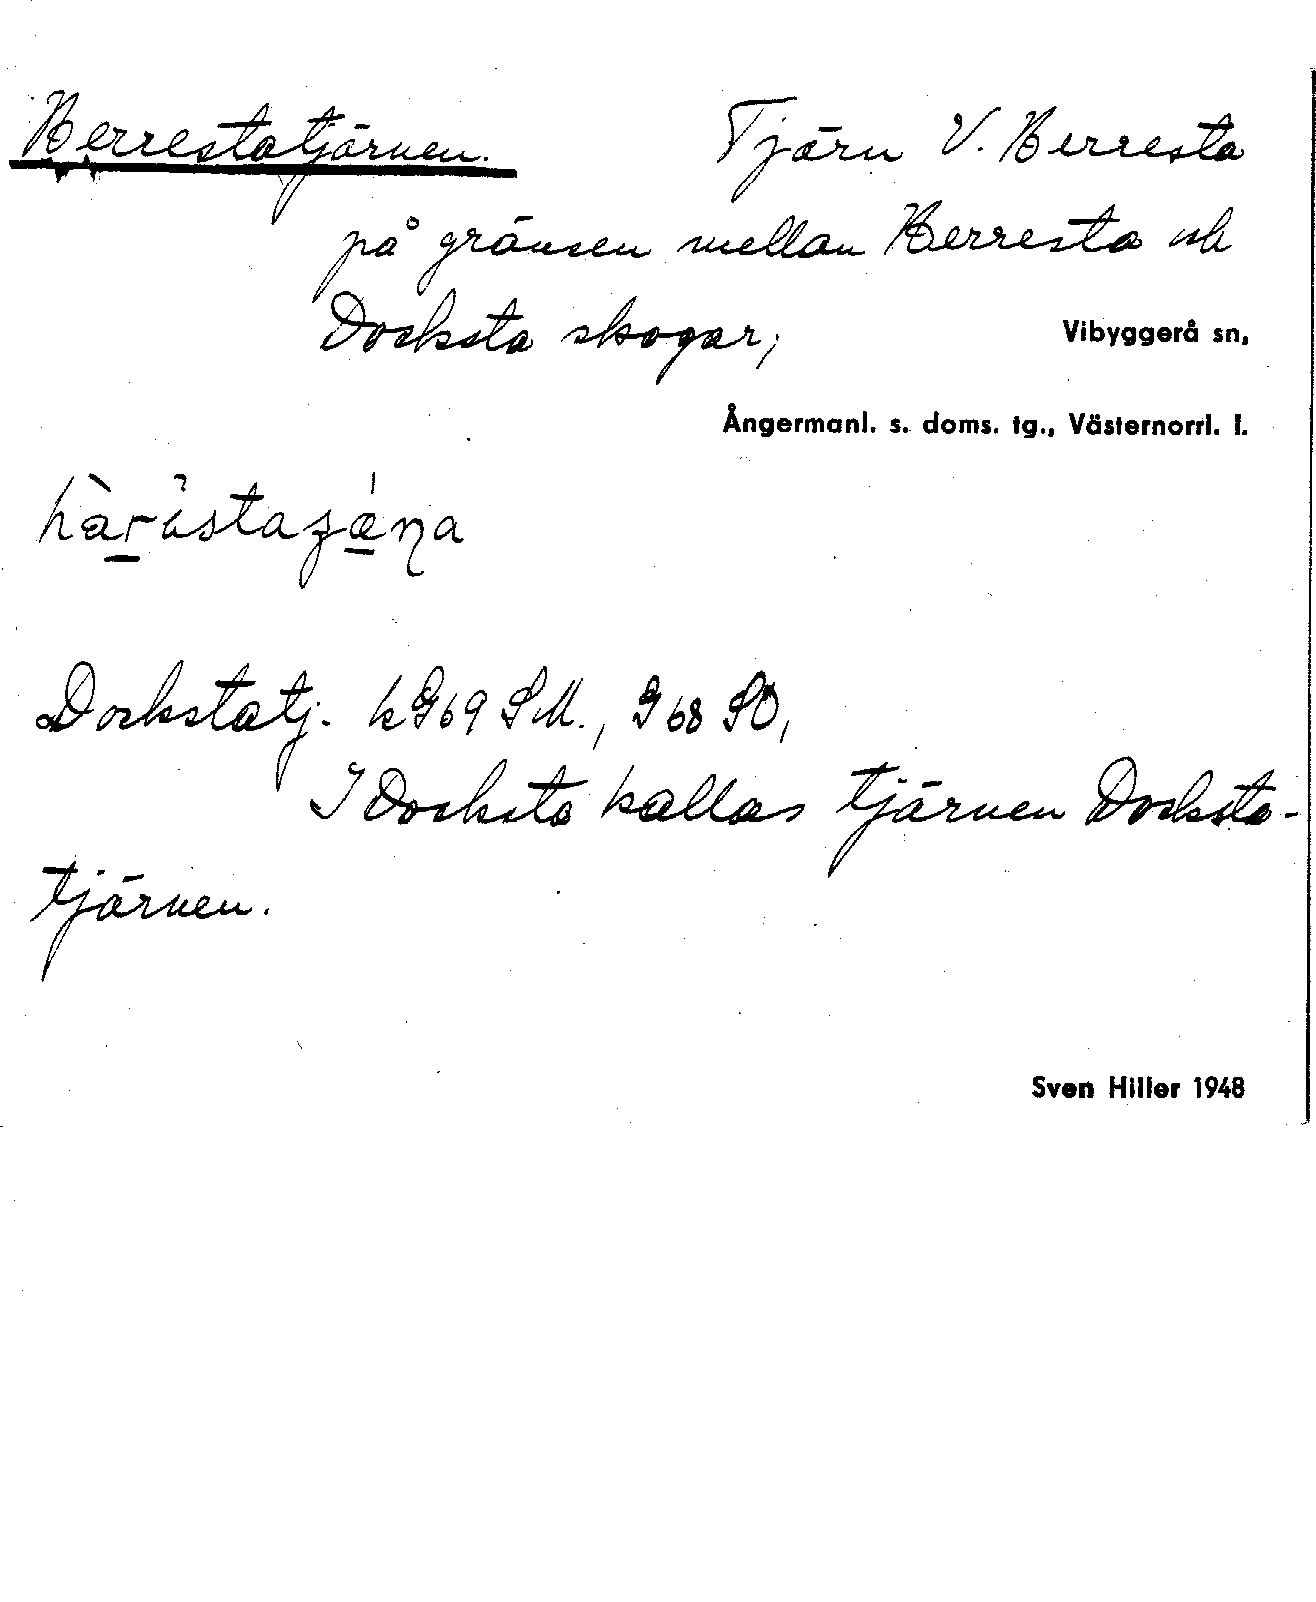 Herrestatjärnen.
Tjärn V. Herresta
på gränsen mellan Herresta och
Docksta skogar;
Vibyggerå sn,
Ångermanl. s. doms. tg., Västernorrl. l.
Dockstatj. k G69 SM., G 68 SO,
I Docksta kallas tjärnen Docksta-
tjärnen.
Sven Hiller 1948